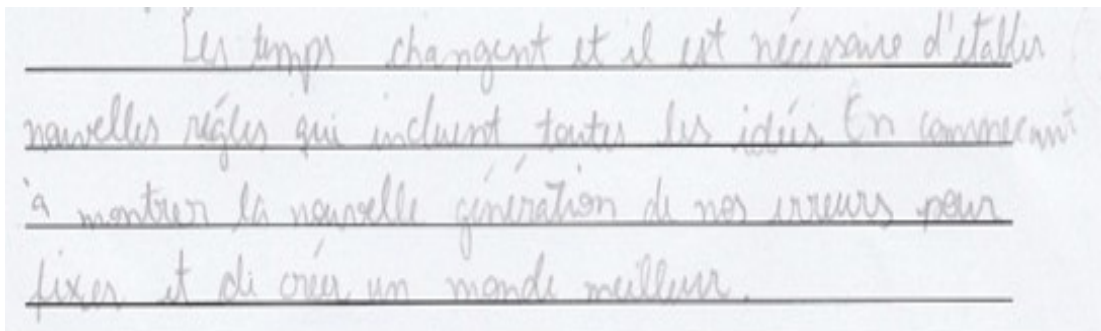 Les temps changent et il est nécessaire d'établir
nouvelles régles qui incluent toutes les idées. En commecant
à montrer la nouvelle génération de nos erreurs pour
fixer et de créer un monde meilleur.